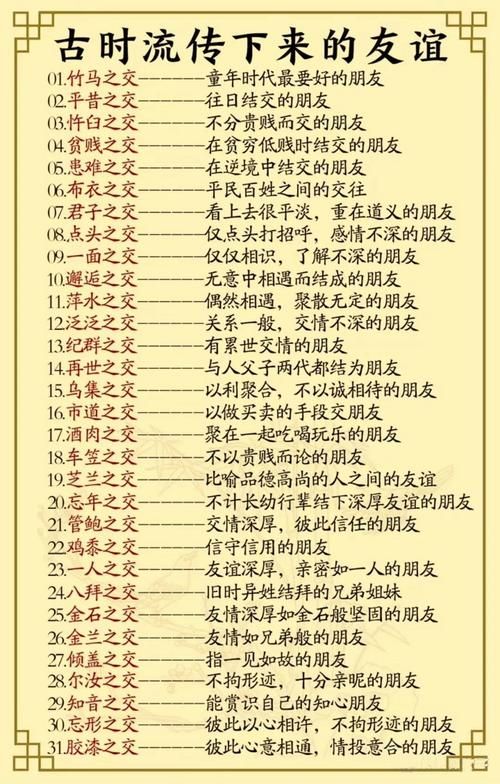 古时流传下来的友谊
01.竹马之交————童年时代最要好的朋友
02.平昔之交————往日结交的朋友
03.忤臼之交————不分贵贱而交的朋友
04.贫贱之交————在贫穷低贱时结交的朋友
05.患难之交————在逆境中结交的朋友
06.布衣之交————平民百姓之间的交往
07.君子之交————看上去很平淡，重在道义的朋友
08.点头之交————仅点头打招呼，感情不深的朋友
09.一面之交————仅仅相识，了解不深的朋友
10.邂逅之交————无意中相遇而结成的朋友
11.萍水之交————偶然相遇，聚散无定的朋友
12.泛泛之交————关系一般，交情不深的朋友
13.纪群之交————有累世交情的朋友
14.再世之交————与人父子两代都结为朋友
15.乌集之交————以利聚合，不以诚相待的朋友
16.市道之交————以做买卖的手段交朋友
17.酒肉之交————聚在一起吃喝玩乐的朋友
18.车笠之交————不以贵贱而论的朋友
19.芝兰之交————比喻品德高尚的人之间的友谊
20.忘年之交————不计长幼行辈结下深厚友谊的朋友
21.管鲍之交————交情深厚，彼此信任的朋友
22.鸡黍之交————信守信用的朋友
23.一人之交————友谊深厚，亲密如一人的朋友
24.八拜之交————旧时异姓结拜的兄弟姐妹
25.金石之交————友情深厚如金石般坚固的朋友
26.金兰之交————友情如兄弟般的朋友
27.倾盖之交————指一见如故的朋友
28.尔汝之交————不拘形迹，十分亲昵的朋友
29.知音之交————能赏识自己的知心朋友
30.忘形之交————彼此以心相许，不拘形迹的朋友
31.胶漆之交————彼此心意相通，情投意合的朋友